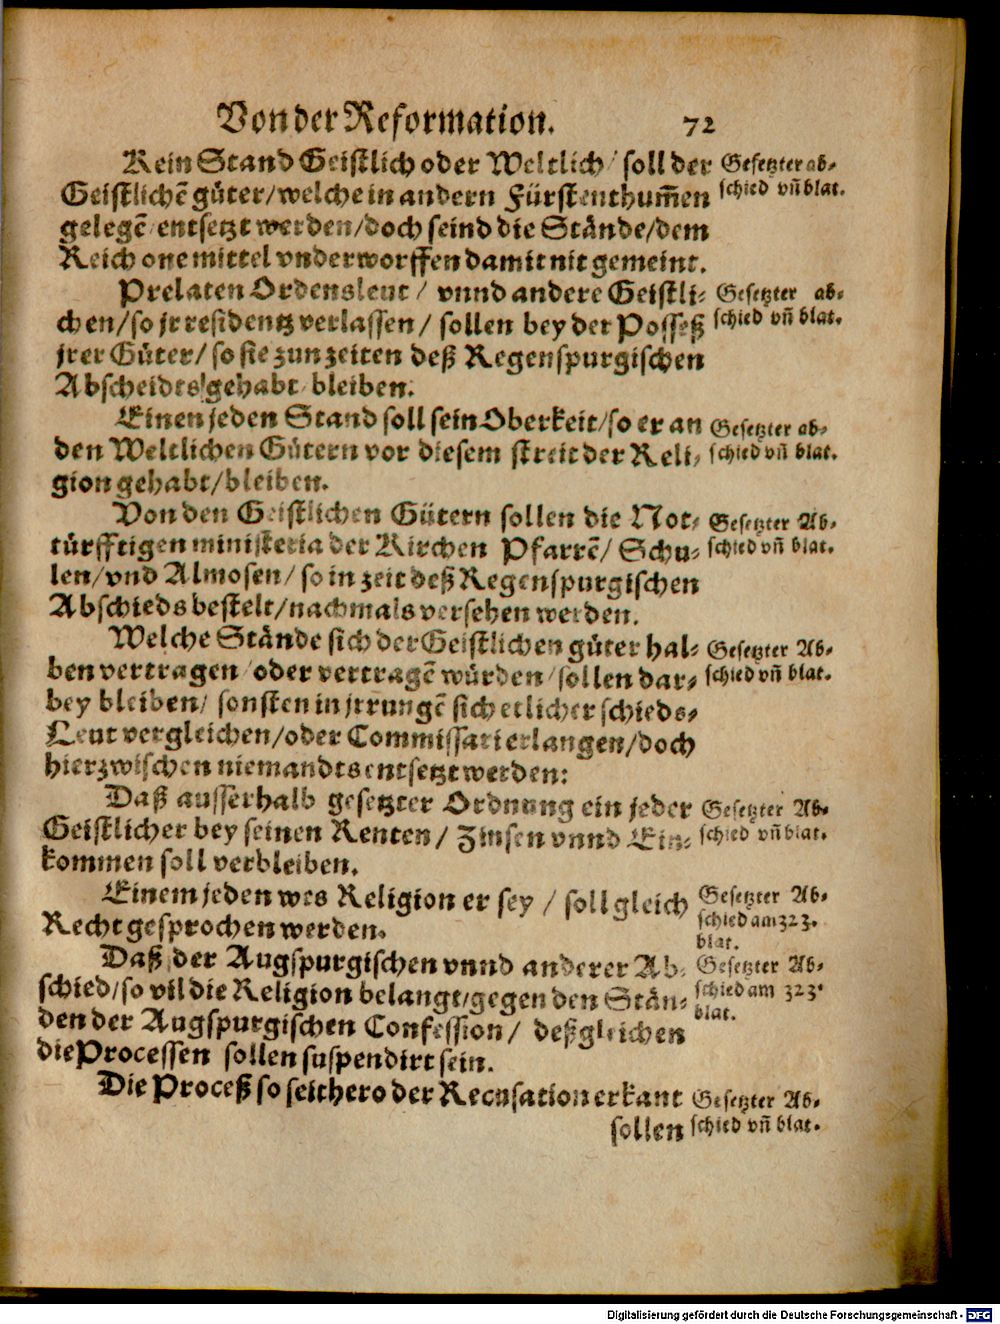 Von der Reformation. 72
Kein Stand Geistlich oder Weltlich / soll der
Geistlichẽ güter / welche in andern Fürstenthum̃en
gelegẽ / entsetzt werden / doch seind die Stände / dem
Reich one mittel vnderworffen damit nit gemeint.
Gesetzter ab-
schied vñ blat.
Prelaten Ordensleut / vnnd andere Geistli-
chen / so jr residentz verlassen / sollen bey der Posseß
jrer Güter / so sie zun zeiten deß Regenspurgischen
Abscheidts gehabt / bleiben.
Gesetzter ab-
schied vñ blat.
Einen jeden Stand soll sein Oberkeit / so er an
den Weltlichen Gütern vor diesem streit der Reli-
gion gehabt / bleiben.
Gesetzter ab-
schied vñ blat.
Von den Geistlichen Gütern sollen die Not-
türfftigen ministeria der Kirchen Pfarrẽ / Schu-
len / vnd Almosen / so in zeit deß Regenspurgischen
Abschieds bestelt / nachmals versehen werden.
Gesetzter Ab-
schied vñ blat.
Welche Stände sich der Geistlichen güter hal-
ben vertragen / oder vertragẽ würden / sollen dar-
bey bleiben / sonsten in jrrungẽ sich etlicher schieds-
Leut vergleichen / oder Commissari erlangen / doch
hierzwischen niemandts entsetzt werden:
Gesetzter Ab-
schied vñ blat.
Daß ausserhalb gesetzter Ordnung ein jeder
Geistlicher bey seinen Renten / Zinsen vnnd Ein-
kommen soll verbleiben.
Gesetzter Ab-
schied vñ blat.
Einem jeden wes Religion er sey / soll gleich
Recht gesprochen werden.
Gesetzter Ab-
schied am 323.
blat.
Daß der Augspurgischen vnnd anderer Ab-
schied / so vil die Religion belangt / gegen den Stän-
den der Augspurgischen Confession / deßgleichen
die Processen sollen suspendirt sein.
Gesetzter Ab-
schied am 323.
blat.
Die Proceß so seithero der Recusation erkant
Gesetzter Ab-
schied vñ blat.
sollen
Digitalisierung gefördert durch die Deutsche Forschungsgemeinschaft - DFG